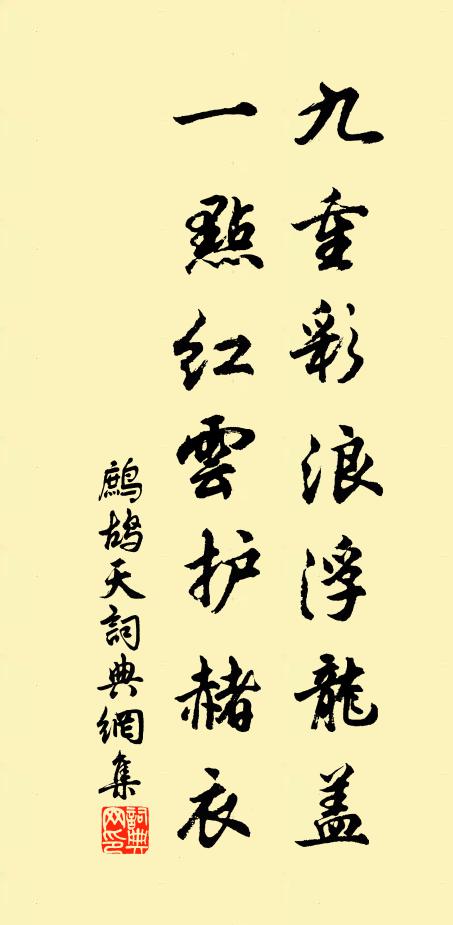 九重彩浪浮龍盖
一點红雲护赭衣
鷓鴣天詞典網集
詞典網印